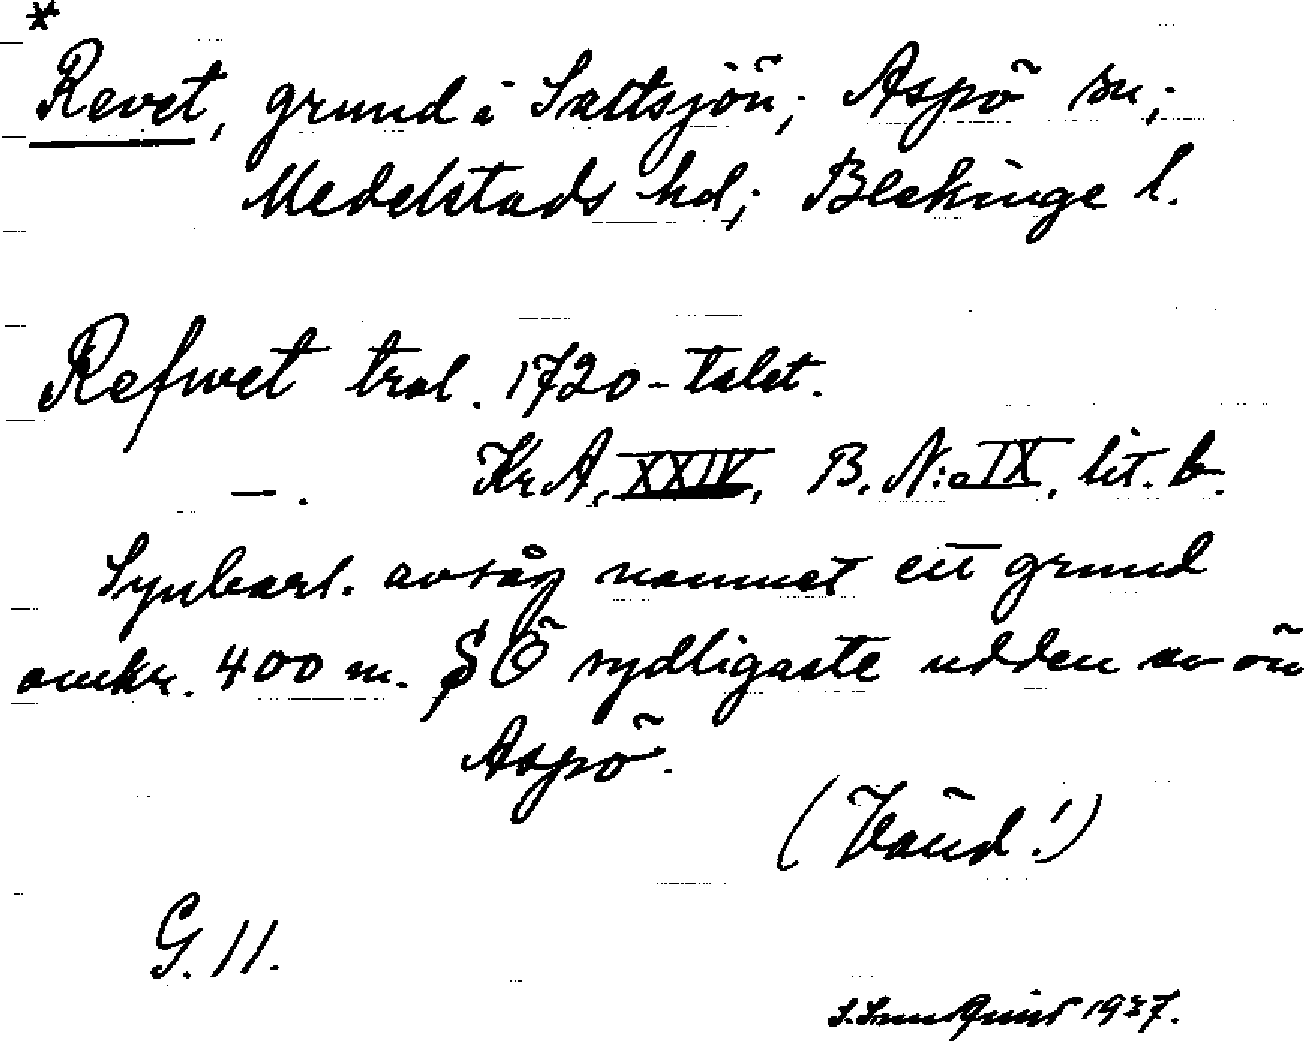 *
Revet, grund i Saltsjön; Aspö sn;
Medelstads hd; Blekinge l.
Refwet trol. 1720-talet.
—. Kr.A. XXIV, B. N:o IX, lit. b.
Synbarl. avsåg namnet ett grund
omkr. 400 m. SÖ sydligaste udden av ön
Aspö.
(Vänd!)
G. 11.
1937.